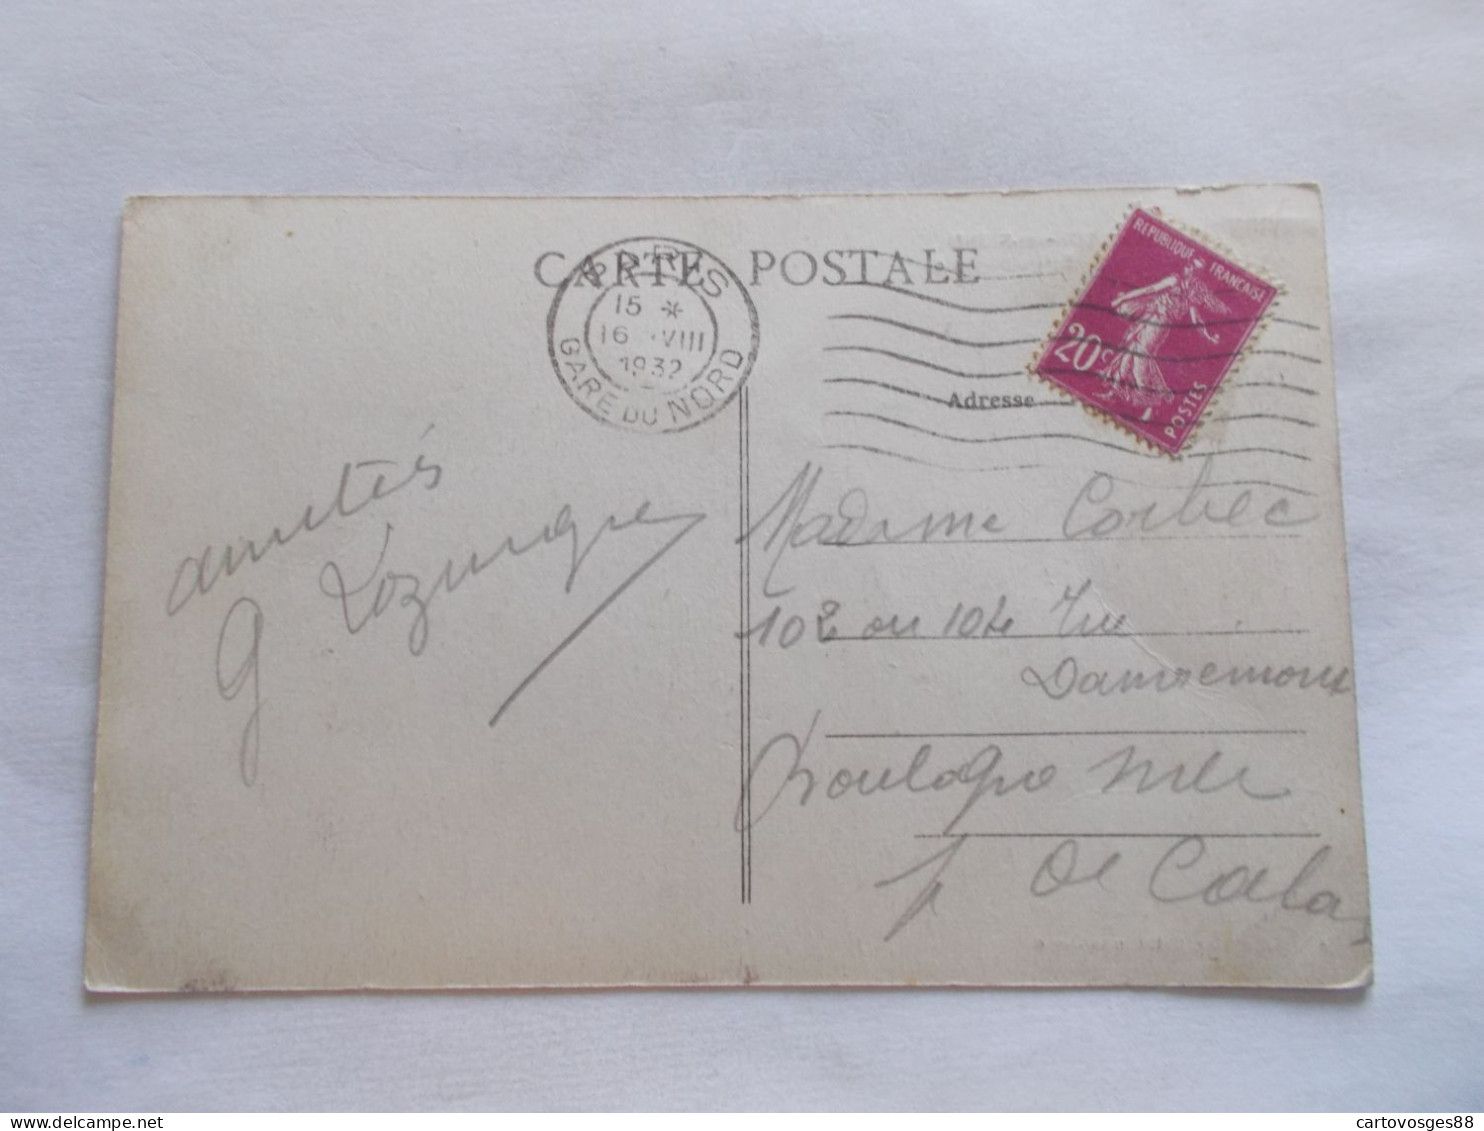 CARTE POSTALE
PARIS
15 *
16 VIII
1932
GARE DU NORD
REPUBLIQUE FRANÇAISE
20c
POSTES
Adresse
amitiés
G
Madame Corbec
102 ou 104 rue
Damremont
Boulogne mer
P de Calais
cartovosges88